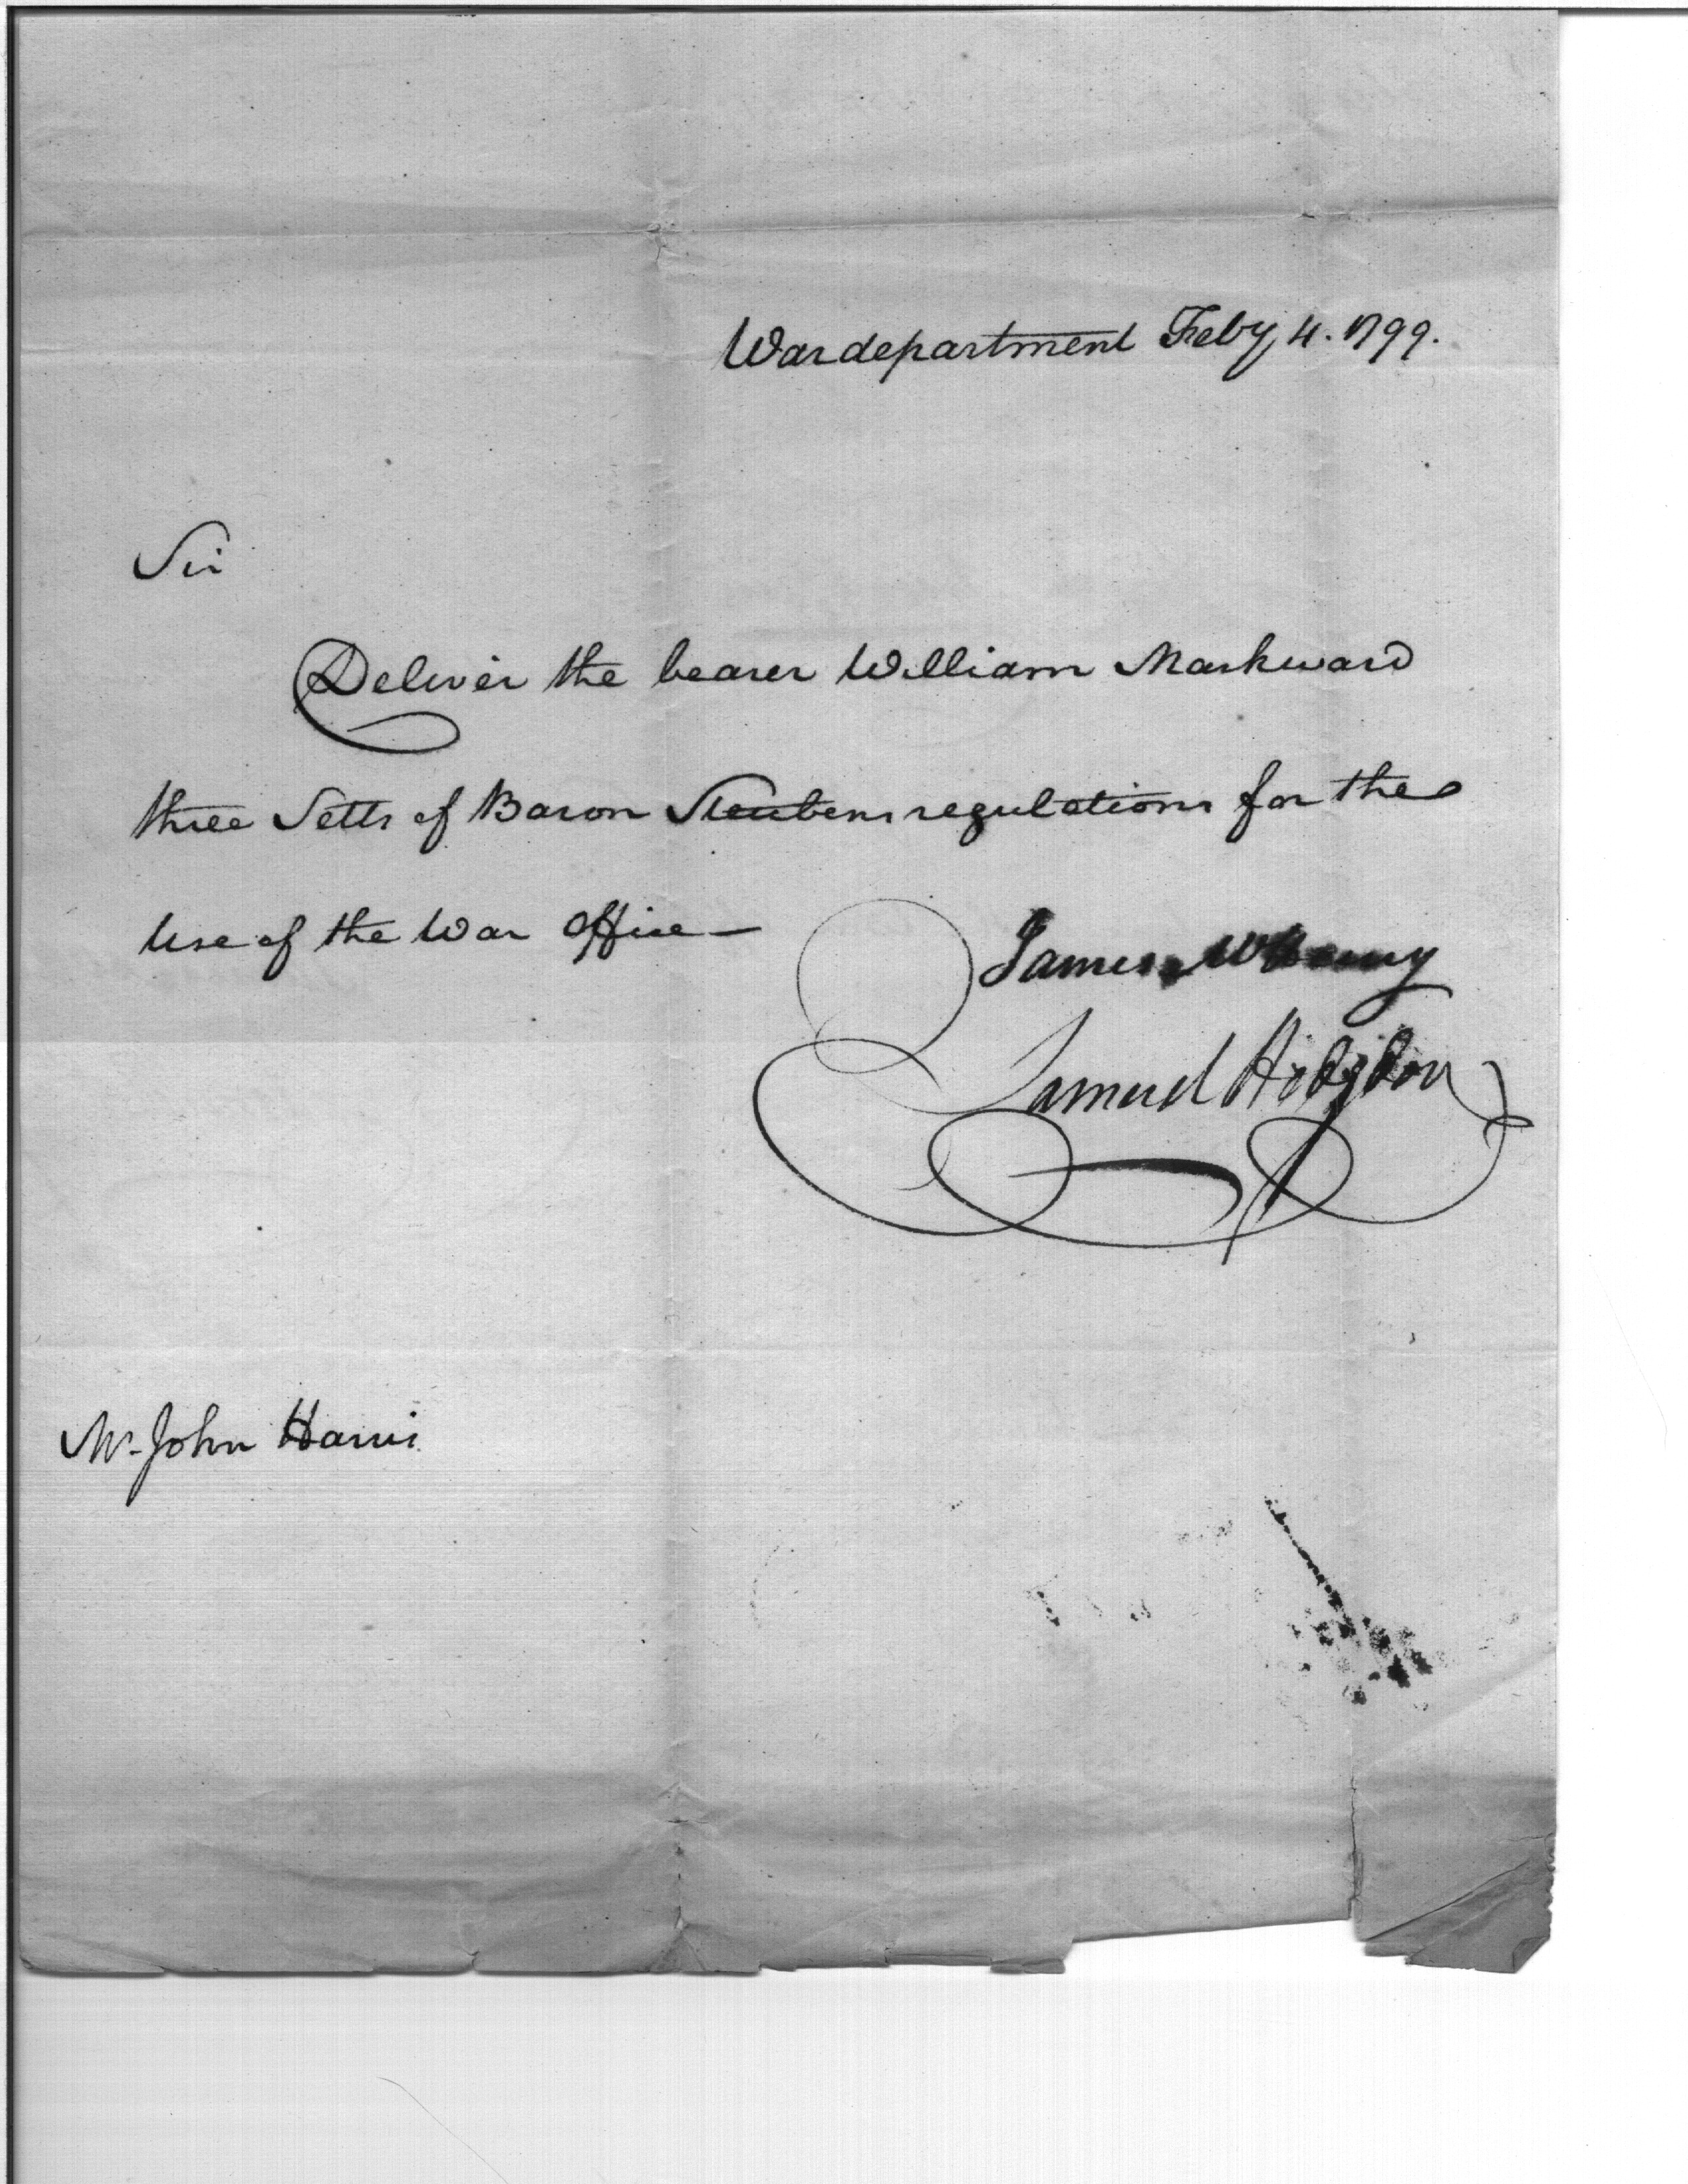 War department Feby 4. 1799.
Sir
Deliver the bearer William Markward
three Setts of Baron Steubens regulations for the
Use of the War Office—
James McHenry
Samuel Hodgdon
Mr. John Harris